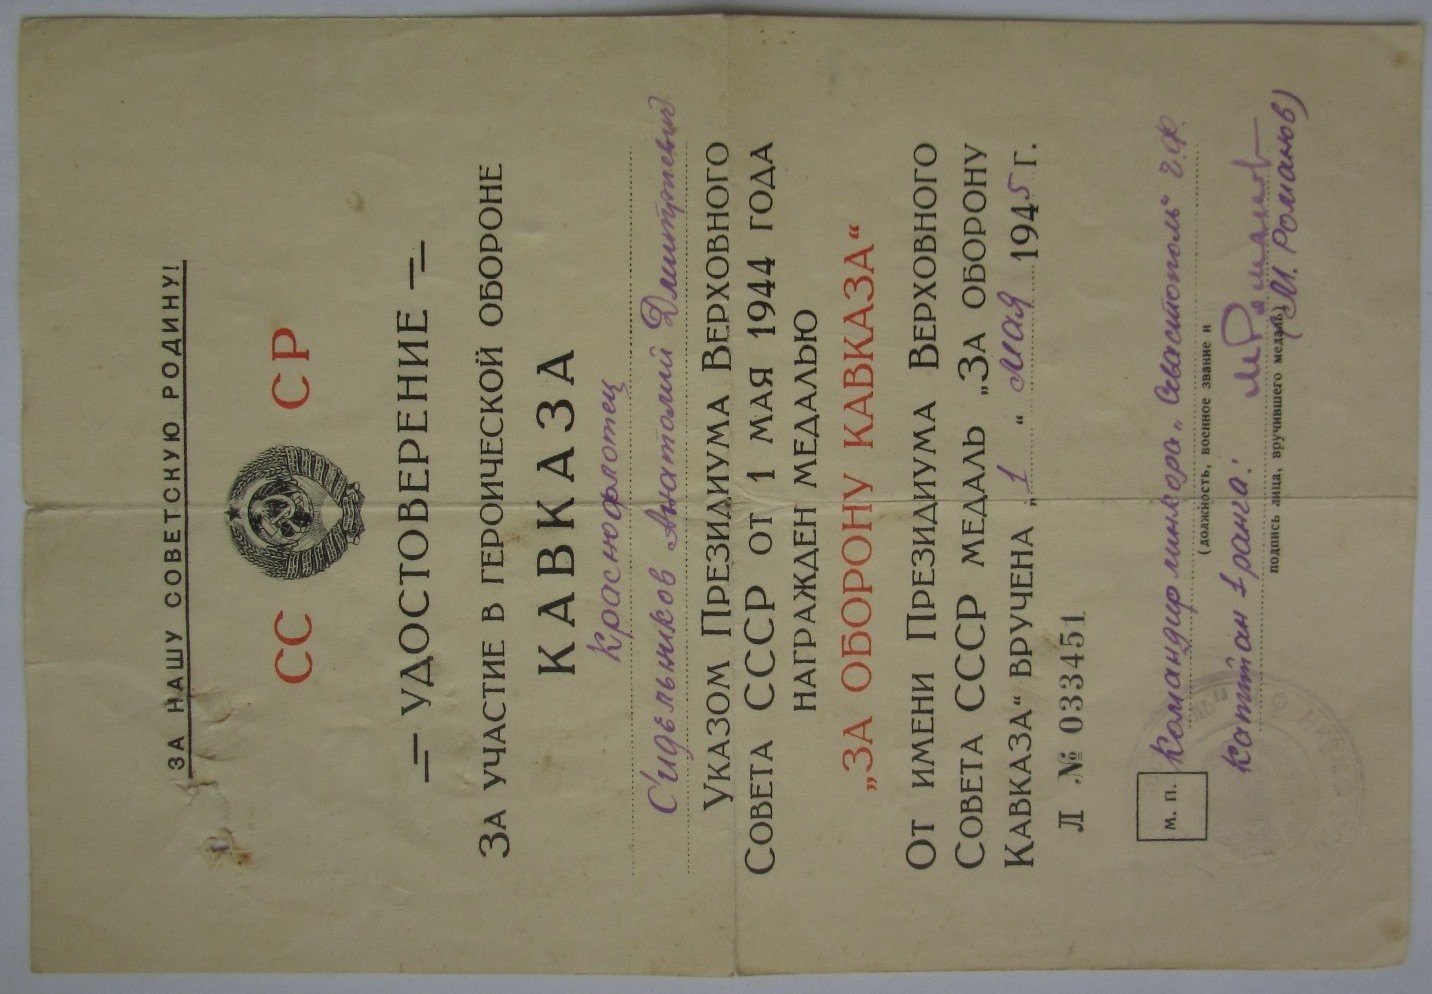 ЗА НАШУ СОВЕТСКУЮ РОДИНУ!
СС СР
УДОСТОВЕРЕНИЕ
ЗА УЧАСТИЕ В ГЕРОИЧЕСКОЙ ОБОРОНЕ
КАВКАЗА
Краснофлотец
Сидельников Анатолий Дмитриевич
УКАЗОМ ПРЕЗИДИУМА ВЕРХОВНОГО
СОВЕТА СССР ОТ 1 МАЯ 1944 ГОДА
НАГРАЖДЕН МЕДАЛЬЮ
„ЗА ОБОРОНУ КАВКАЗА“
ОТ ИМЕНИ ПРЕЗИДИУМА ВЕРХОВНОГО
СОВЕТА СССР МЕДАЛЬ „ЗА ОБОРОНУ
КАВКАЗА“ ВРУЧЕНА „1“ мая 1945 г.
Л № 033451
М. П.
Командир линкора „Севастополь“ Ч.Ф.
(должность, военное звание и
капитан 1 ранга:
подпись лица, вручившего медаль)
(М. Романов)